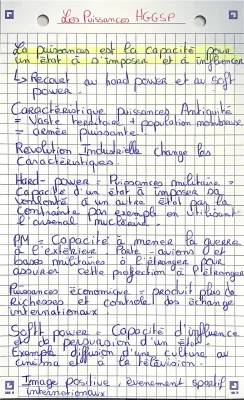 Les Puissances HGGSP
La puissance est la capacité pour
un état à s'imposer et à influencer
↳ Recourt au hard power et au soft
power.
Caractéristique puissances Antiquité
= Vaste territoire + population nombreuse
= armée puissante.
Révolution Industrielle change les
caractéristiques.
Hard-power = Puissance militaire =
capacité d'un état à imposer sa
volonté à un autre état par la
contrainte par exemple en utilisant
l'arsenal nucléaire.
PM = Capacité à mener la guerre
à l'extérieur Porte-avions et
bases militaires à l'étranger pour
assurer cette projection à l'étranger
Puissance économique = produit plus de
richesses et contrôle des échange
internationaux
Soft power = Capacité d'influence
et de persuasion d'un état.
Exemple diffusion d'une culture au
cinéma et à la télévision.
Image positive, évenement sportif
internationaux